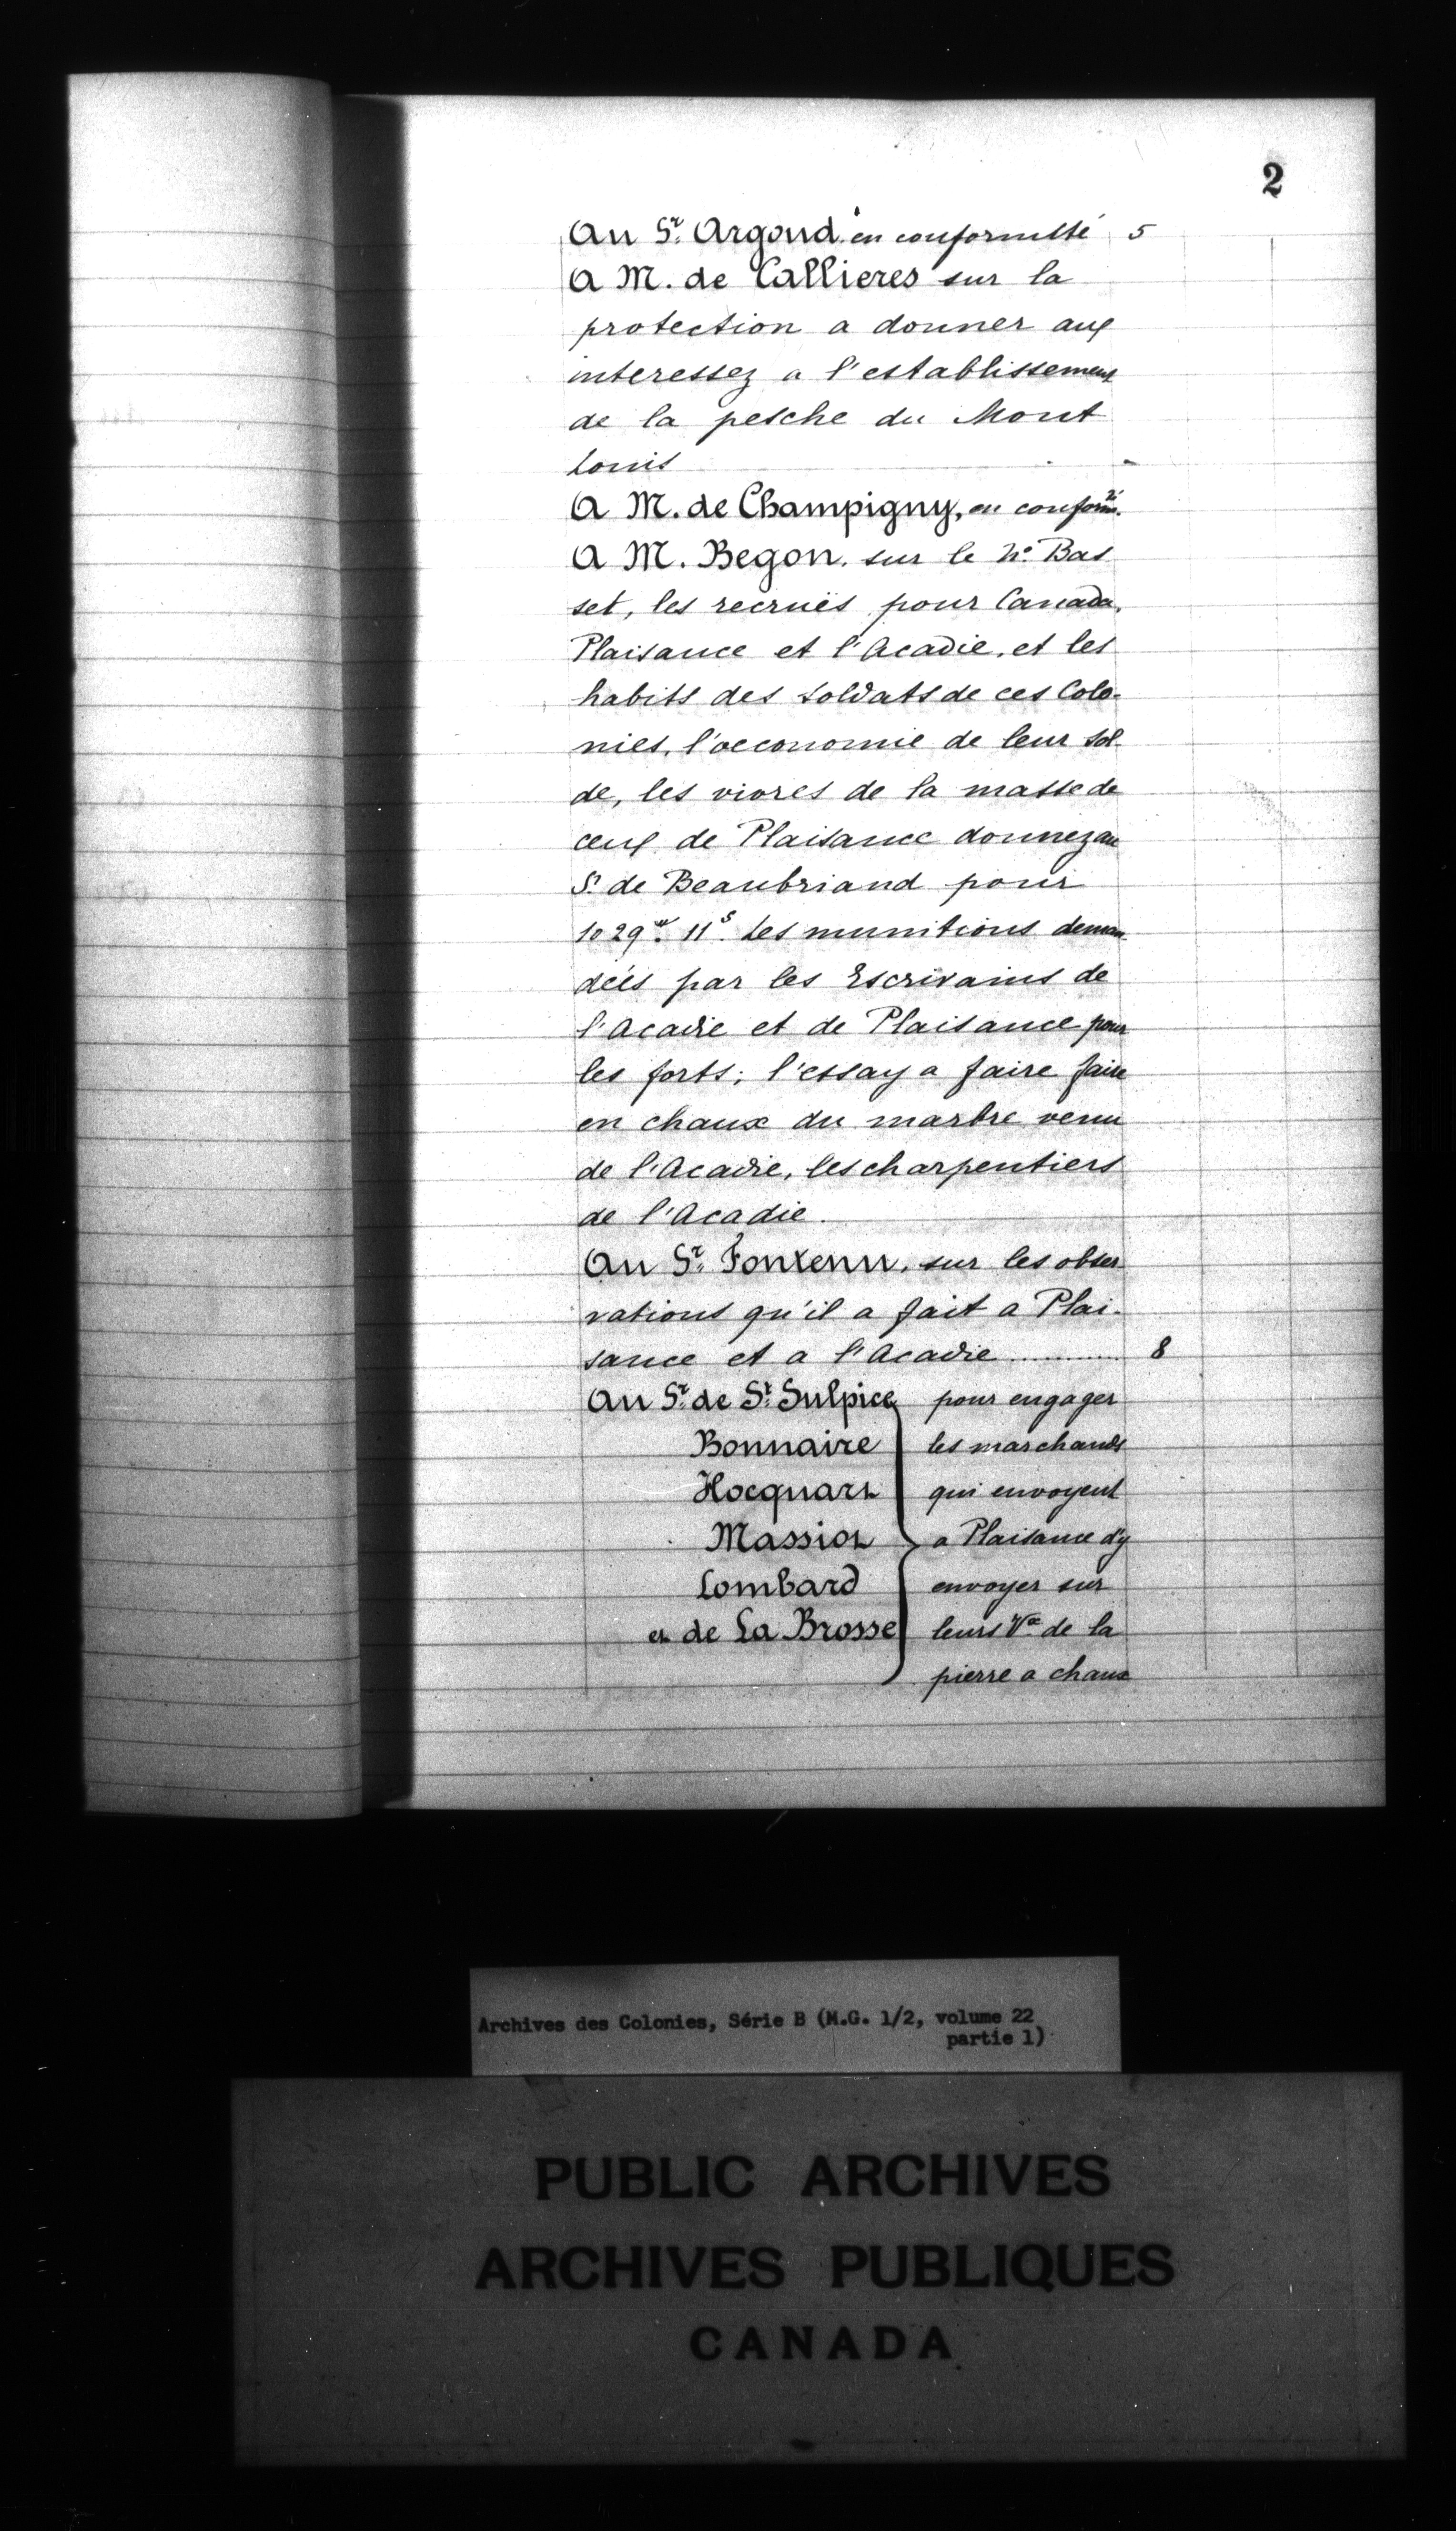 2
Au Sr. Argoud. en conformitté 5
A M. de Callieres sur la
protection a donner aux
interessez a l'establissement
de la pesche du Mont
Louis
A M. de Champigny, en conformté.
A M. Begon. sur le Nre Bas
set, les recruës pour Canada,
Plaisance et l'Acadie, et les
habits des soldats de ces Colo-
nies, l'oeconomie de leur sol
de, les vivres de la masse de
ceux de Plaisance donnez au
Sr de Beaubriand pour
1029tt. 11s. Les munitions deman
dées par les Escrivains de
l'Acadie et de Plaisance pour
les forts; l'essay a faire faire
en chaux du marbre venu
de l'Acadie, les charpentiers
de l'Acadie.
Au Sr. Fontenu, sur les obser
vations qu'il a fait a Plai-
sance et a l'Acadie ............ 8
Au Sr. de St. Sulpice pour engager
Bonnaire les marchands
Hocquart qui envoyent
Massiot a Plaisance d'y
Lombard envoyer sur
et de La Brosse leurs Vx de la
pierre a chaux
Archives des Colonies, Série B (M.G. 1/2, volume 22
partie 1)
PUBLIC ARCHIVES
ARCHIVES PUBLIQUES
CANADA